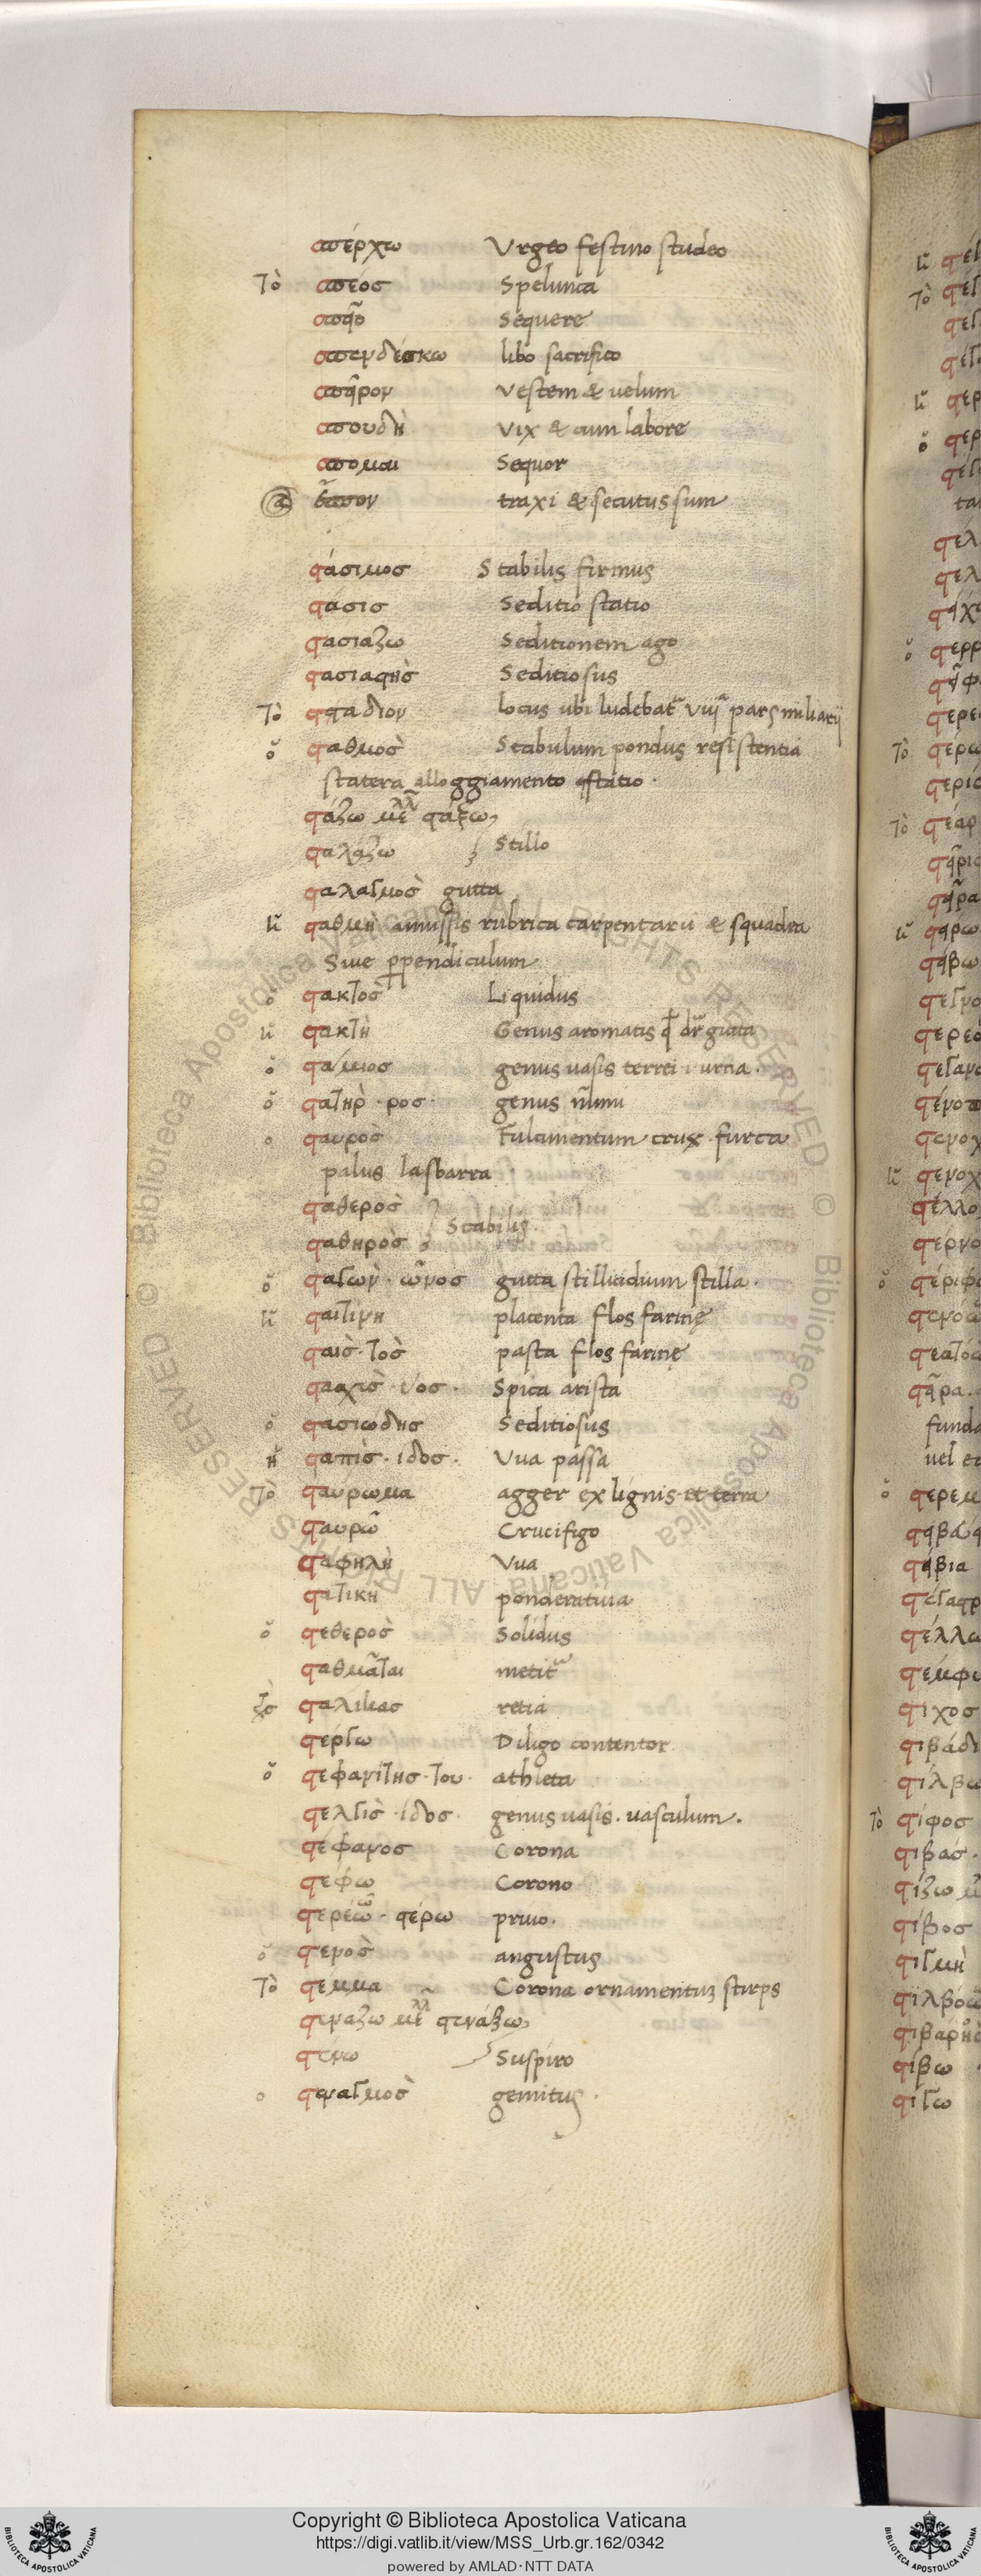 σπέρχω Urgeo festino studeo
Τὸ σπέος Spelunca
Sequere
σπενδέσκω libo sacrifico
σπεῖρον Vestem & uelum
σπουδῆ Vix & cum labore
σπομαι Sequor
ἔσπον traxi & secutus sum
στάσιμος Stabilis firmus
στασις Seditio statio
στασιαζω Seditionem ago
στασιαστὴς Seditiosus
Τὸ σταδιον locus ubi ludebat̃ viij pars miliarij
ὁ σταθμος Stabulum pondus resistentia
statera alloggiamento statio .
στάζω μέλλ στάξω
σταλαζω Stillo
σταλαγμος gutta
ἡ σταθμὴ amussis rubrica carpentarii & squadra
Siue ꝑpendiculum
ὁ στακτος Liquidus
ἡ στακτὴ Genus aromatis gutta
ὁ σταμνος genus uasis terrei i urna .
ὁ στατὴρ · ρος · genus nũmi
ὁ σταυρος Fulcimentum crux furca
palus la sbarra
σταθερος
Stabilis
σταθηρος
ὁ σταγων · ῶνος gutta stillicidium stilla .
ἡ σταιτινη placenta flos farinę
σταις · τος pasta flos farinę
σταχις · υος · Spica arista
ὁ στασιωδης Seditiosus
ἡ σταπις · ιδος · Vua passa
Τὸ σταυρωμα agger ex lignis et terra
σταυρῶ Crucifigo
σταφηλὴ Vua
στατικη ponderatiua
ὁ στεθερος Solidus
σταθμᾶται metit̃
σταλικας retia
στεργω Diligo contentor
ὁ στεφανιτης · του · athleta
στελγις · ίδος · genus uasis . uasculum .
στέφανος Corona
στέφω Corono
στερέω · στέρω priuo .
ὁ στενος angustus
Τὸ στεμμα Corona ornamentuʒ stirps
στεναζω μέλλ στενάξω
στενω Suspiro
ὁ στεναγμος gemitus .
Copyright © Biblioteca Apostolica Vaticana
https://digi.vatlib.it/view/MSS_Urb.gr.162/0342
powered by AMLAD·NTT DATA